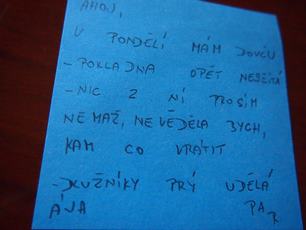 AHOJ,
V PONDĚLÍ MÁM DOVČU
-POKLADNA OPĚT NESČÍTÁ
-NIC Z NÍ PROSÍM
NEMAŽ, NEVĚDĚLA BYCH,
KAM CO VRÁTIT
-DLUŽNÍKY PRÝ UDĚLÁ
ÁJA